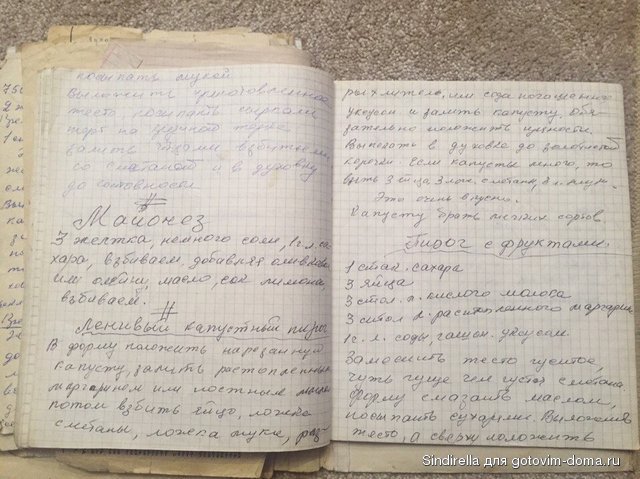 посыпать мукой
выложить приготовленное
тесто, посыпать
залить яйцами взбитыми
со сметаной и в духовку
до готовности
Майонез
3 желтка, немного соли, 1 ч. л. са-
хара, взбиваем, добавляя оливковое
или олейну, масло, сок лимона,
взбиваем.
Ленивый капустный пирог
В форму положить нарезанную
капусту, залить растопленным
маргарином или постным маслом
потом взбить яйцо, ложка
сметаны, ложка муки, раз-
рыхлителя, или сода погашенная
уксусом и залить капусту. Обя-
зательно положить
Выпекать в духовке до золотистой
корочки. Если капусты много, то
3 яйца, 3 лож. сметаны,
Это очень вкусно.
Капусту брать мягких сортов.
Пирог с фруктами.
1 стак. сахара
3 яйца
3 стол. л. кислого молока
3 стол л. растопленного маргарина
1 ч. л. соды, гашен. уксусом.
Замесить тесто густое,
чуть гуще чем густая сметана.
Форму смазать маслом,
посыпать сухарями. Выложить
тесто, а сверху положить
Sindirella для gotovim-doma.ru